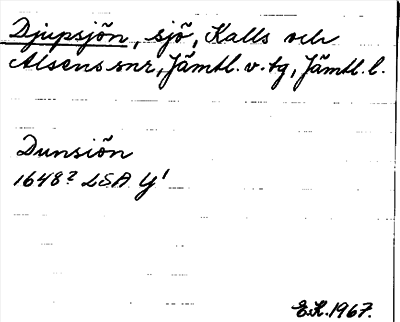 Djupsjön, sjö, Kalls och
Alsens snr, Jämtl. v. tg, Jämtl. l.
Dunsiön
1648? LSA Y¹
E.K. 1967.